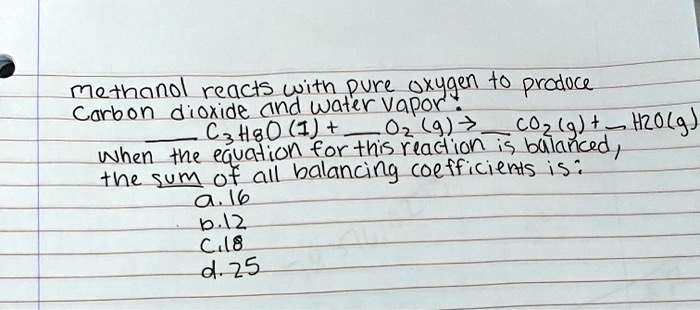 methanol reacts with pure oxygen to produce
Carbon dioxide and water vapor:
__ C3H8O (1) + __ O2 (g) → __ CO2 (g) + __ H2O(g)
when the equation for this reaction is balanced,
the sum of all balancing coefficients is:
a. 16
b. 12
C. 18
d. 25